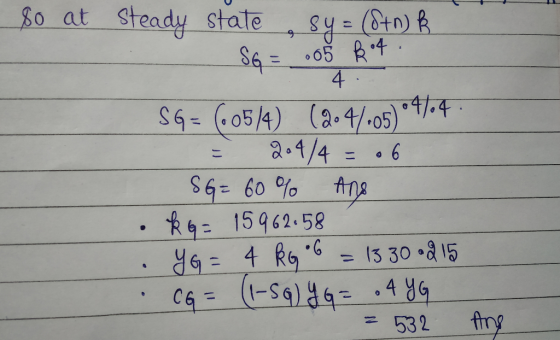 So at steady state, sy = (δ+n) k
SG = .05 k^.4 / 4
SG = (.05/4) (2.4/.05)^.4/.4
= 2.4/4 = .6
SG = 60% Ans
. kG = 15962.58
. yG = 4 kG^.6 = 1330.215
. CG = (1-SG) yG = .4 yG
= 532 Ans